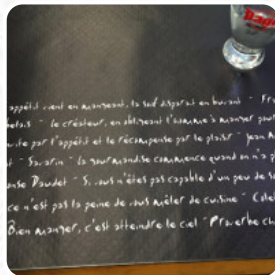 appétit vient en mangeant, la soif disparait en buvant - Fr
belais - le créateur, en obligeant l'homme à manger pour
vite par l'appétit et le récompense par le plaisir - Jean
t - Savarin - la gourmandise commence quand on n'a p
onse Daudet - Si vous n'êtes pas capable d'un peu de so
ce n'est pas la peine de vous mêler de cuisine - Cole
Bien manger, c'est atteindre le ciel - Proverbe ch